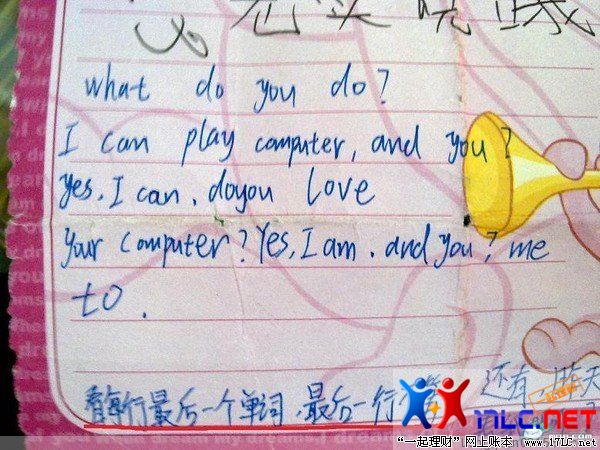 what do you do?
I can play computer, and you?
Yes. I can. do you love
Your computer? Yes, I am. and you? me
to.
看每行最后一个单词.最后一行
还有 昨天
17LC.NET
“一起理财”网上账本 www.17LC.net